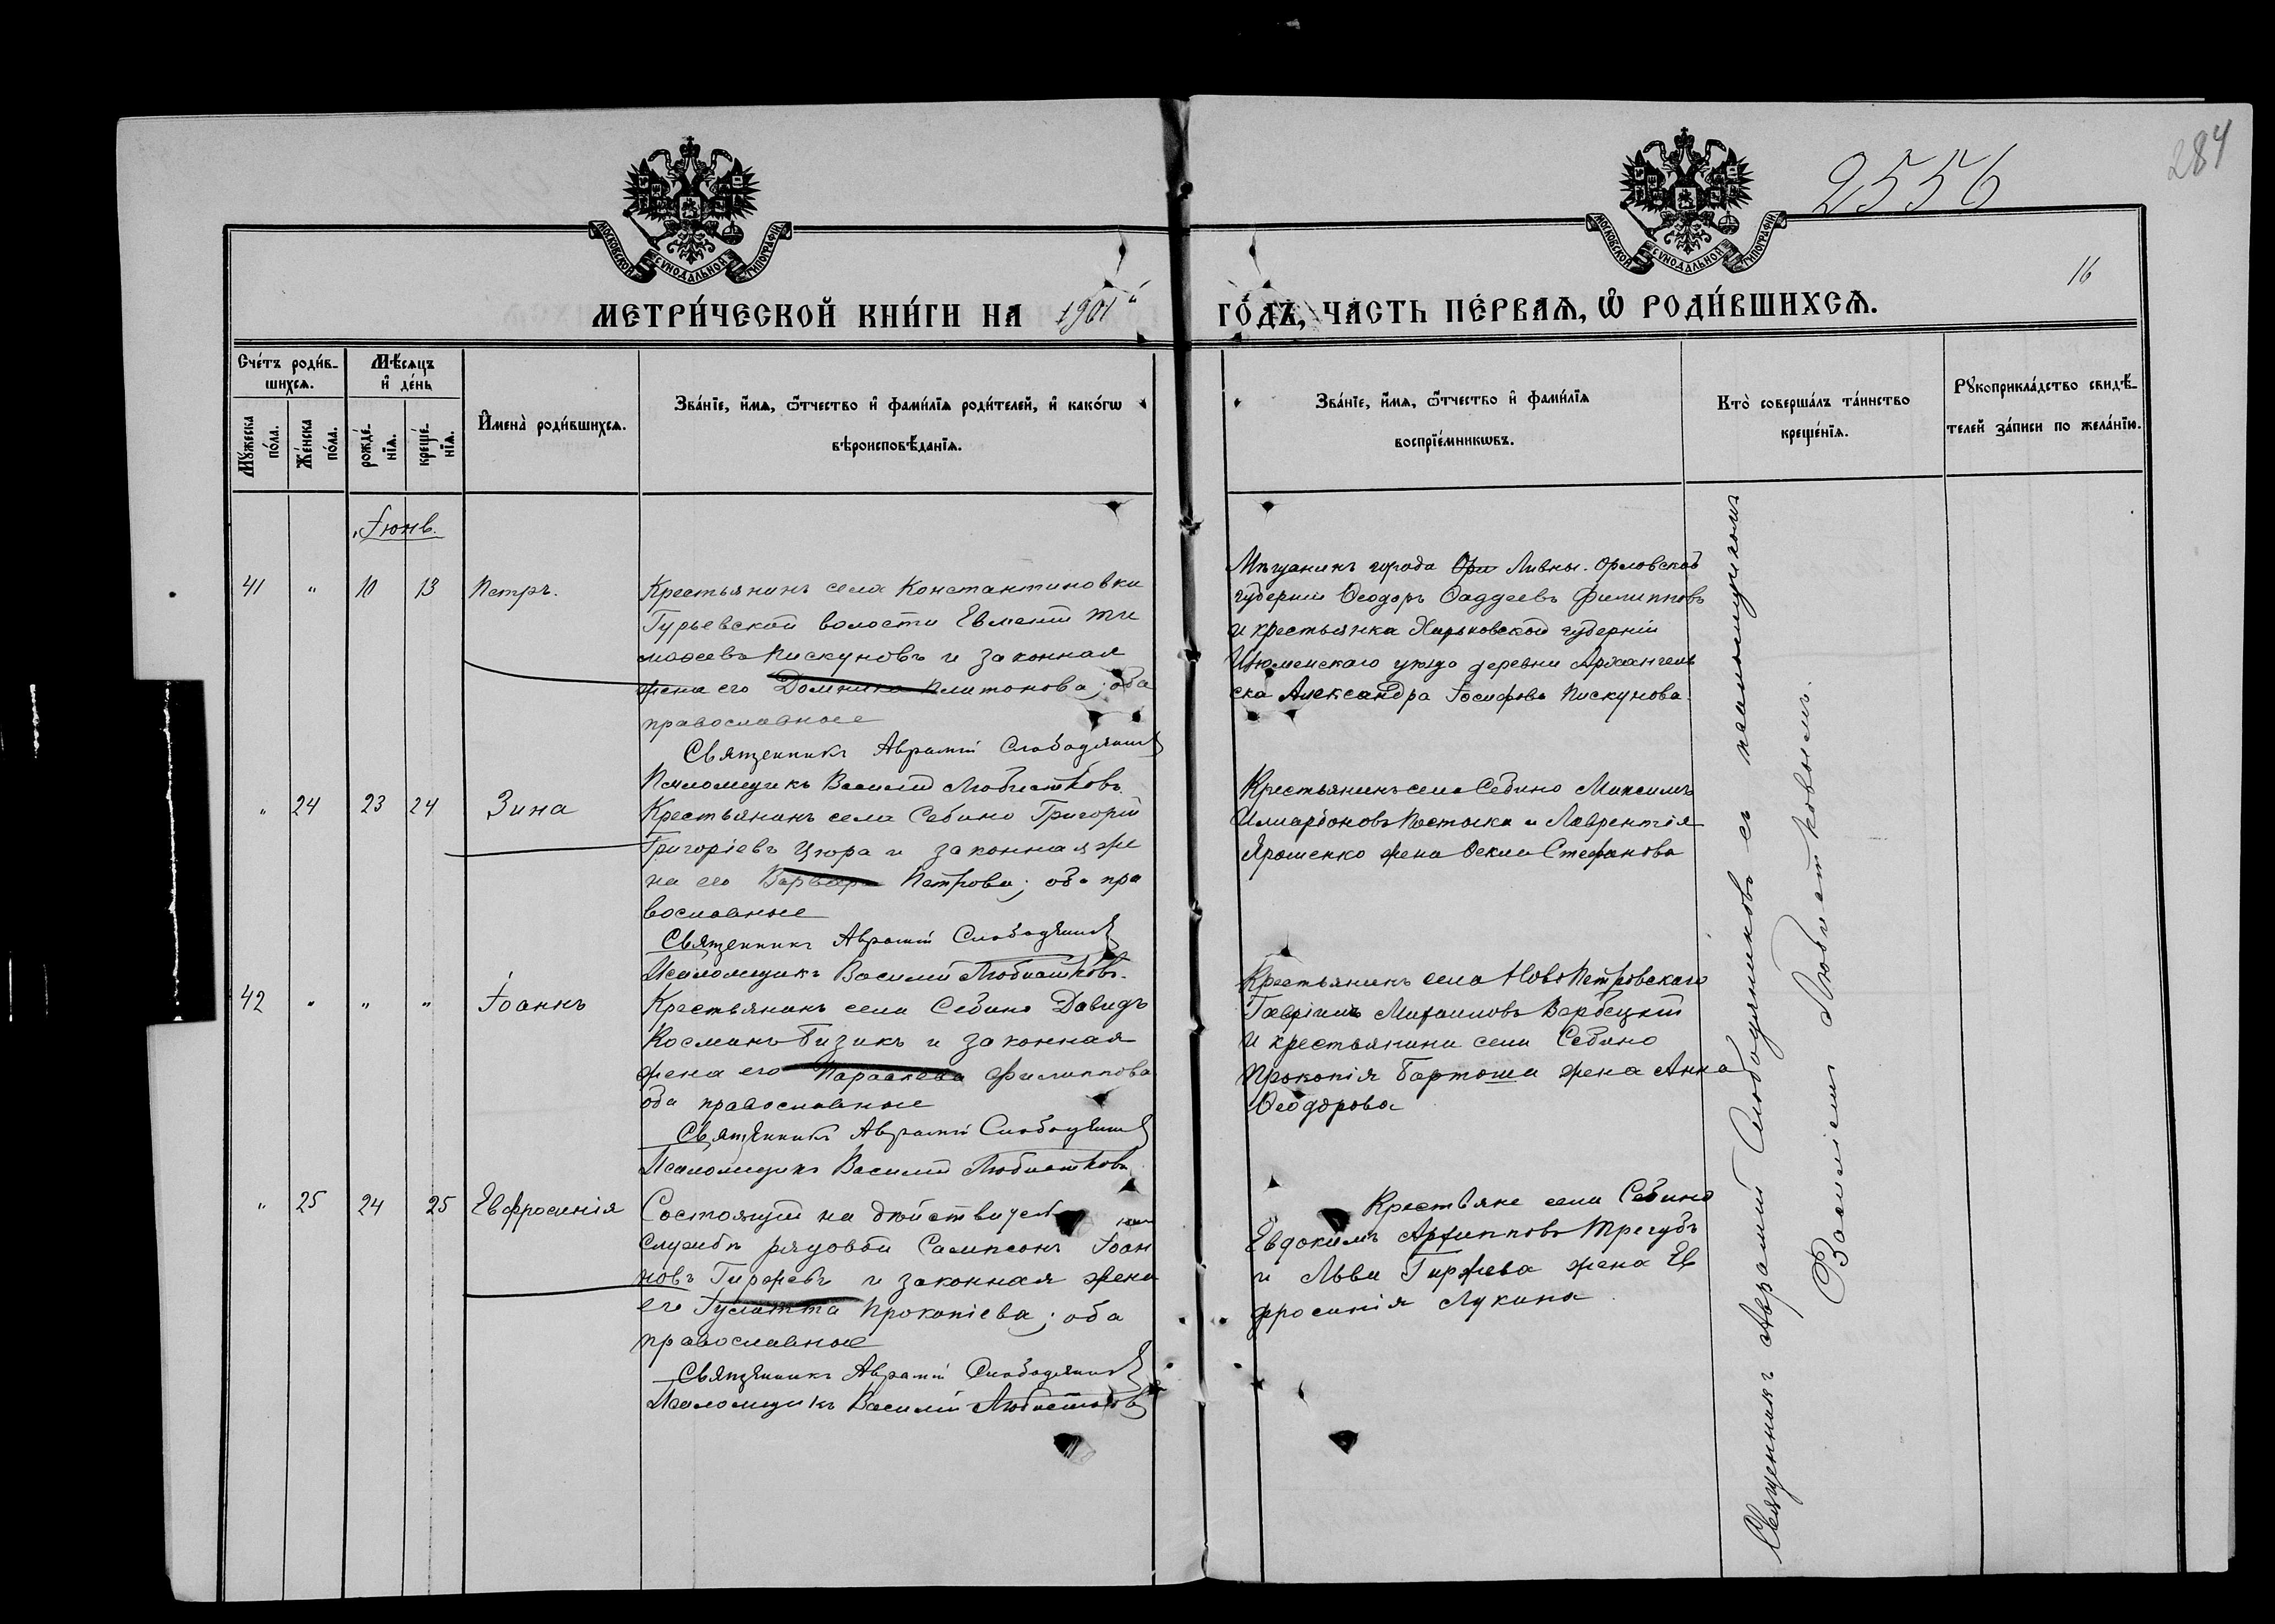 2556
284
МОСКОВСКОЙ СѴНОДАЛЬНОЙ ТИПОГРАФІИ
МОСКОВСКОЙ СѴНОДАЛЬНОЙ ТИПОГРАФІИ
16
МЕТРИ́ЧЕСКОЙ КНИ́ГИ НА 1901 й ГО́ДЪ, ЧА́СТЬ ПЕ́РВАѦ, Ѡ҆ РОДИ́ВШИХСѦ.
Сче́тъ роди́в-
шихсѧ.
Мꙋ́жеска по́ла.
Же́нска по́ла.
Мѣ́сѧцъ
и҆ де́нь
рожде́-
нїѧ.
креще́-
нїѧ.
И҆мена̀ роди́вшихсѧ.
Зва́нїе, и҆́мѧ, ѻ҆́тчество и҆ фамѝлїѧ роди́телей, и҆ како́гѡ
вѣроисповѣ́данїѧ.
Зва́нїе, и҆́мѧ, ѻ҆́тчество и҆ фамѝлїѧ
воспрїе́мникѡвъ.
Кто̀ соверша́лъ та́инство
креще́нїѧ.
Рꙋкоприкла́дство свидѣ́-
телей за́писи по жела́нїю.
Іюнь.
41 " 10 13 Петръ.
Крестьянинъ села Константиновки
Гурьевской волости Евменій Ти
мофеевъ Пискуновъ и законная
жена его Домника Платонова; оба
православные
Священникъ Аврамій Слободяник
Псаломщикъ Василій Любистковъ
Мѣщанинъ города Ливны. Орловской
губерніи Ѳеодоръ Ѳаддеевъ Филипповъ
и крестьянка Харьковской губерніи
Изюмскаго уѣзда деревни Архангель
ска Александра Іосифова Пискунова.
" 24 23 24 Зина
Крестьянинъ села Себино Григорій
Григоріевъ Цюра и законная же
на его Варвара Петрова; оба пра
вославные
Священникъ Аврамій Слободяник
Псаломщикъ Василій Любистковъ.
Крестьянинъ села Себино Максимъ
Илларіоновъ Костыка и Лаврентія
Ярошенко жена Ѳекла Стефанова
42 " " " Іоаннъ
Крестьянинъ села Себино Давидъ
Косминъ Бизикъ и законная
жена его Параскева Филиппова
оба православные
Священникъ Аврамій Слободяник
Псаломщикъ Василій Любистковъ
Крестьянинъ села Ново Петровскаго
Гавріилъ Михаиловъ Вербецкій
и крестьянина села Себино
Прокопія Бартоша жена Анна
Ѳеодорова
" 25 24 25 Евфросинія
Состоящій на дѣйствител
службѣ рядовой Сампсонъ Іоан
новъ Гиржевъ и законная жена
его Іулитта Прокопіева; оба
православные
Священникъ Аврамій Слободяник
Псаломщикъ Василій Любистковъ
Крестьяне села Себино
Евдокимъ Архипповъ Трегубъ
и Льва Гиржева жена Ев
фросинія Лукина.
Священникъ Аврамій Слободяниковъ съ псаломщикомъ
Василіемъ Любистковымъ.